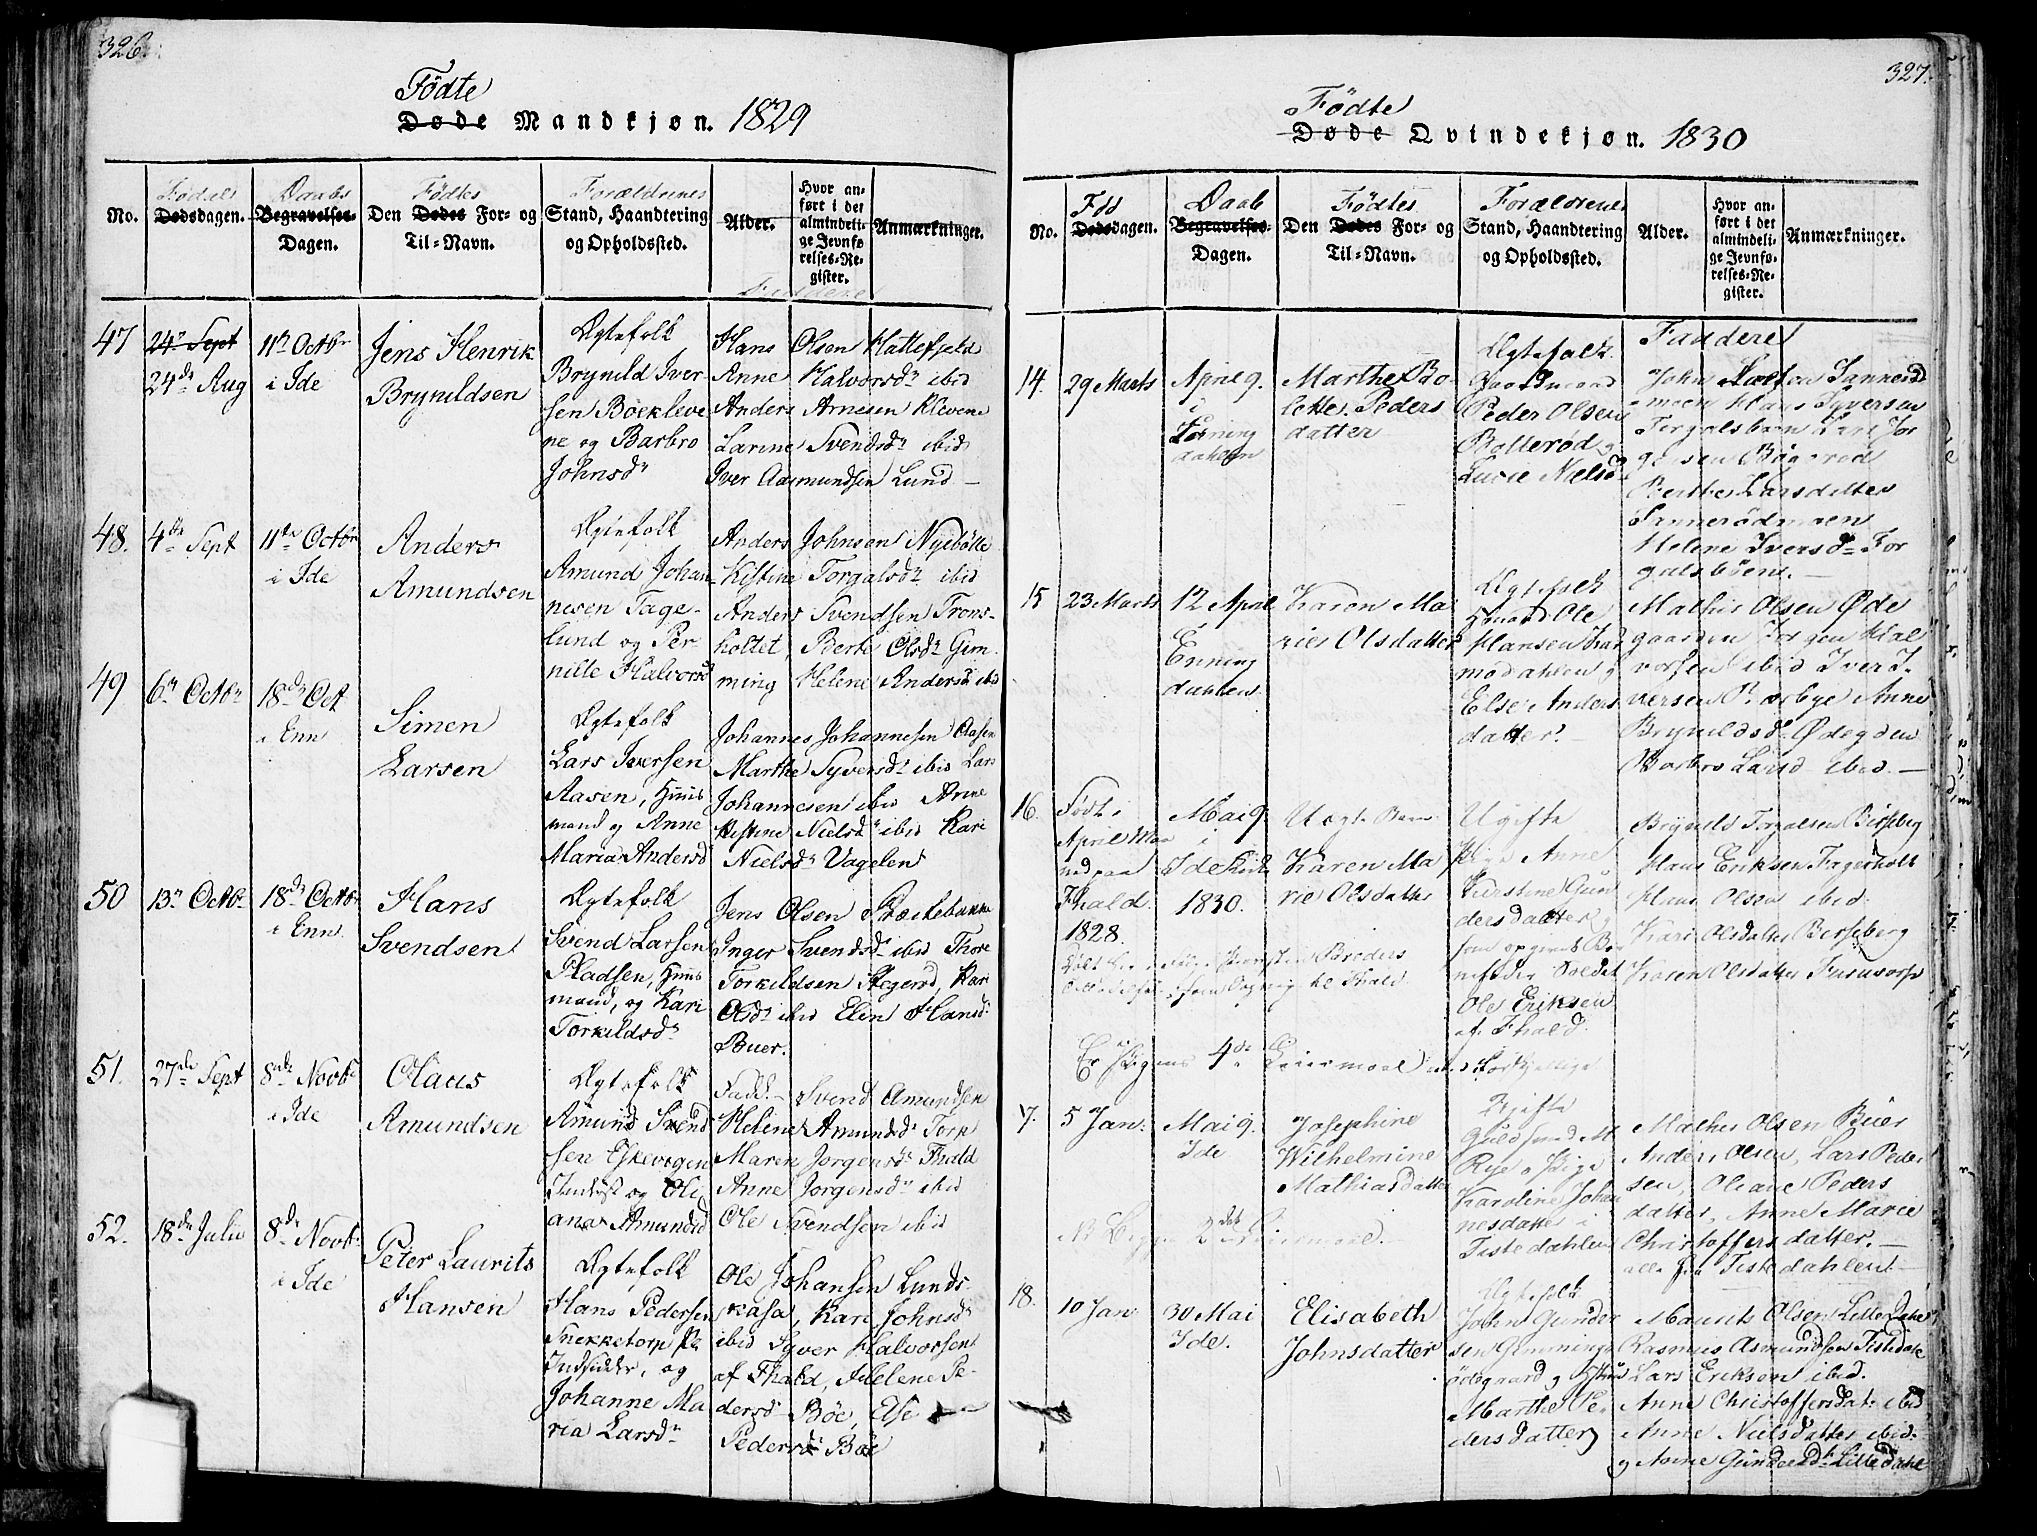 326.
Födte
Døde Mandkjøn. 1829
No.
Fødsels
Dødsdagen.
Daabs
Begravelses-
Dagen.
Födtes
Den Dødes For- og
Til-Navn.
Forældrenes
Stand, Haandtering
og Opholdssted.
Alder.
Hvor an-
ført i det
almindeli-
ge Jevnfø
relses-Re-
gister.
Anmærkninger.
Faddere
47
24 Sept
24de Aug
11te Octbr
i Ide
Jens Henrik
Brynildsen
Ægtefolk
Brynild Iver
sen Böekleve
ne og Barbro
Johnsdr
Hans Olsen Hattefjeld
Anne Halvorsdr ibid
Anders Arnesen Klevene
Larine Svendsdr ibid
Iver Aamundsen Lund
48.
4de Sept
11te Octbr
i Ide
Anders
Amundsen
Ægtefolk
Amund Johan
nesen Tage-
lund og Per-
nille Halvorsd
Anders Johnsen Nyebölle
Kistine Torgalsdr ibid
Anders Svendsen Trons-
holtet, Berte Olsdr Gim
ming Helene Andersd ibid
49
6te Octbr
18de Oct
i Enn
Simen
Larsen
Ægtefolk
Lars Iversen
Aasen, Huus
mand og Anne
Maria Andersd
Johannes Johannesen Aasen
Marthe Syversdr ibid Lars
Johannesen ibid Anne
Kistine Nielsdr ibid Kari
Nielsdr Vagelen
50
13te Octbr
18de Octbr
i Enn
Hans
Svendsen
Ægtefolk
Svend Larsen
Pladsen, Huus
mand, og Kari
Torkildsdr
Jens Olsen Stækebakke
Inger Svendsdr ibid Thore
Torkildsen Stegerød, Kari
Olsdr ibid Elen Hansdr
Buer.
51.
27de Sept
8de Novbr
i Ide
Olaus
Amundsen
Ægtefolk
Amund Svend
sen Eskevigen
Inderst og Oli
ana Amundsd
Fadd. Svend Amundsen
Helene Amundsdr Torp
Maren Jörgensdr Fhald
Anne Jörgensdr ibid
Ole Svendsen ibid
52.
18de Julii
8de Novbr
i Ide
Peter Laurits
Hansen
Ægtefolk
Hans Pedersen
Snekketorp Pl.
Indsidder, og
Johanne Ma
ria Larsdr
Ole Johansen Lunds
kasa, Kari Johnsdr
ibid Syver Halvorsen
af Fhald, Helene Pe-
dersd Böe, Else
Pedersdr Böe
327.
Födte
Døde Qvindekjøn. 1830
No.
Föd
Dødsdagen.
Daab
Begravelses-
Dagen.
Födtes
Den Dødes For- og
Til-Navn.
Forældrenes
Stand, Haandtering
og Opholdssted.
Alder.
Hvor an-
ført i det
almindeli-
ge Jevnfø-
relses-Re-
gister.
Anmærkninger.
Faddere
14.
29 Marts
April 9.
i
Enning
dahlen
Marthe Bo-
lette Peders
datter
Ægtefolk
Gaardmand
Peder Olsen
Bolleröd og
Lucie Nielsd
John Sannerød
moen Hans Syversen
Torgalsböen Lars Jör
gensen Bögeröd
Berthe Larsdatter
Sanneröd moen
Helene Iversdr Tor
galsböen.
15
23 Marts
12 April
i
Enning
dahlen.
Karen Ma
rie Olsdatter
Ægtefolk
Ole
Hansen
modahlen og
Else Anders
datter.
Mathis Olsen Øde
gaarden Jörgen Hal
vorsen ibid Iver I-
versen Pr æbye Anne
Brynildsdr Ødegden
Barbro Larsd ibid.
16.
Födt i
April Maa
ned paa
Fhald.
1828.
Mai 9.
i
Ide Kirke
1830.
Uægte Barn
Karen Ma
rie Olsdatter
Ugifte
Pige Anne
Kirstine Gun
dersdatter og
som opgivet Bar
nefader Soldat
Ole Eriksen
af Fhald.
Brynild Torgalsen Berseberg
Hans Eriksen Fagerholt
Hans Olsen ibid.
Kari Olsdatter Berseberg
Karen Olsdatter
Er Pigens 4de Leiermaal
17.
5 Jan.
Mai 9.
Ide
Josephine
Wilhelmine
Mathiasdatter
Ugifte
Guldsmed M
Rye og Pige
Karoline Johan
nesdatter i
Tistedahlen
Mathis Olsen Buer
Anders Olsen, Lars Peder
sen, Oliane Peders
datter, Anne Marie
Christoffersdatter.
alle fra Tistedahlen.
18.
10 Jan:
30 Mai
Ide.
Elisabeth
Johnsdatter
Ægtefolk
John Gunder
sen Gimminge
ödegaard og Hustrue
Marthe Pe
dersdatter
Mauritz Olsen Lilledahl
Rasmus Asmundsen Tistedale
Lars Eriksen ibid.
Anne Christoffersdat: ibid
Anne Nielsdatter ibid.
og Anne Gundersdt Lilledahl